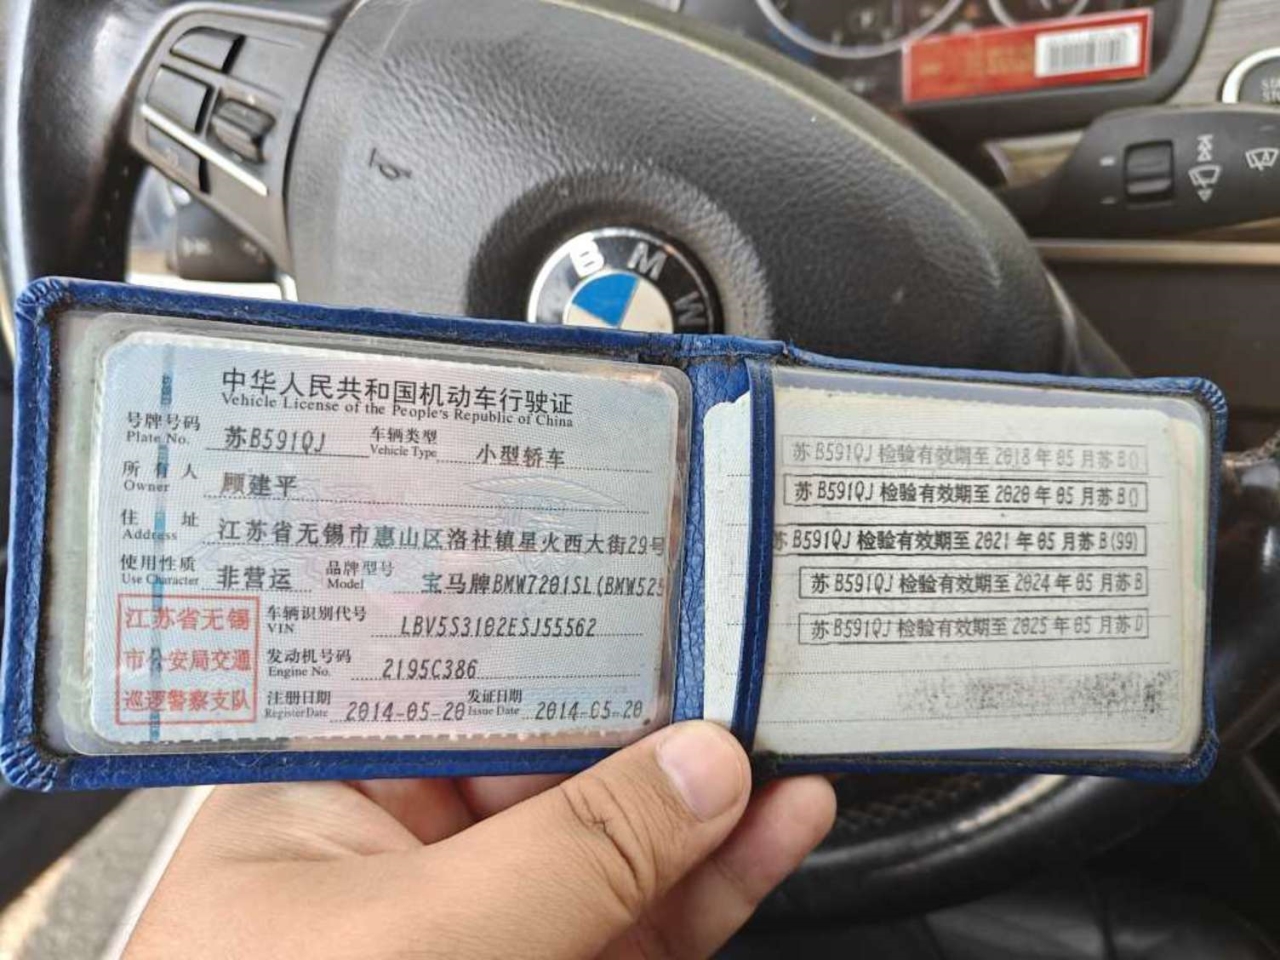 BMW
中华人民共和国机动车行驶证
Vehicle License of the People's Republic of China
号牌号码 苏B591QJ 车辆类型 小型轿车
Plate No. Vehicle Type
所有人 顾建平
Owner
住址 江苏省无锡市惠山区洛社镇星火西大街29号
Address
使用性质 非营运 品牌型号 宝马牌BMW7201SL(BMW525
Use Character Model
江苏省无锡
市公安局交通
巡逻警察支队
车辆识别代号 LBV5S3102ESJ55562
VIN
发动机号码 2195C386
Engine No.
注册日期 2014-05-20 发证日期 2014-05-20
Register Date Issue Date
苏B591QJ检验有效期至2018年05月苏B()
苏B591QJ检验有效期至2020年05月苏B()
苏B591QJ检验有效期至2021年05月苏B(99)
苏B591QJ检验有效期至2024年05月苏B
苏B591QJ检验有效期至2025年05月苏